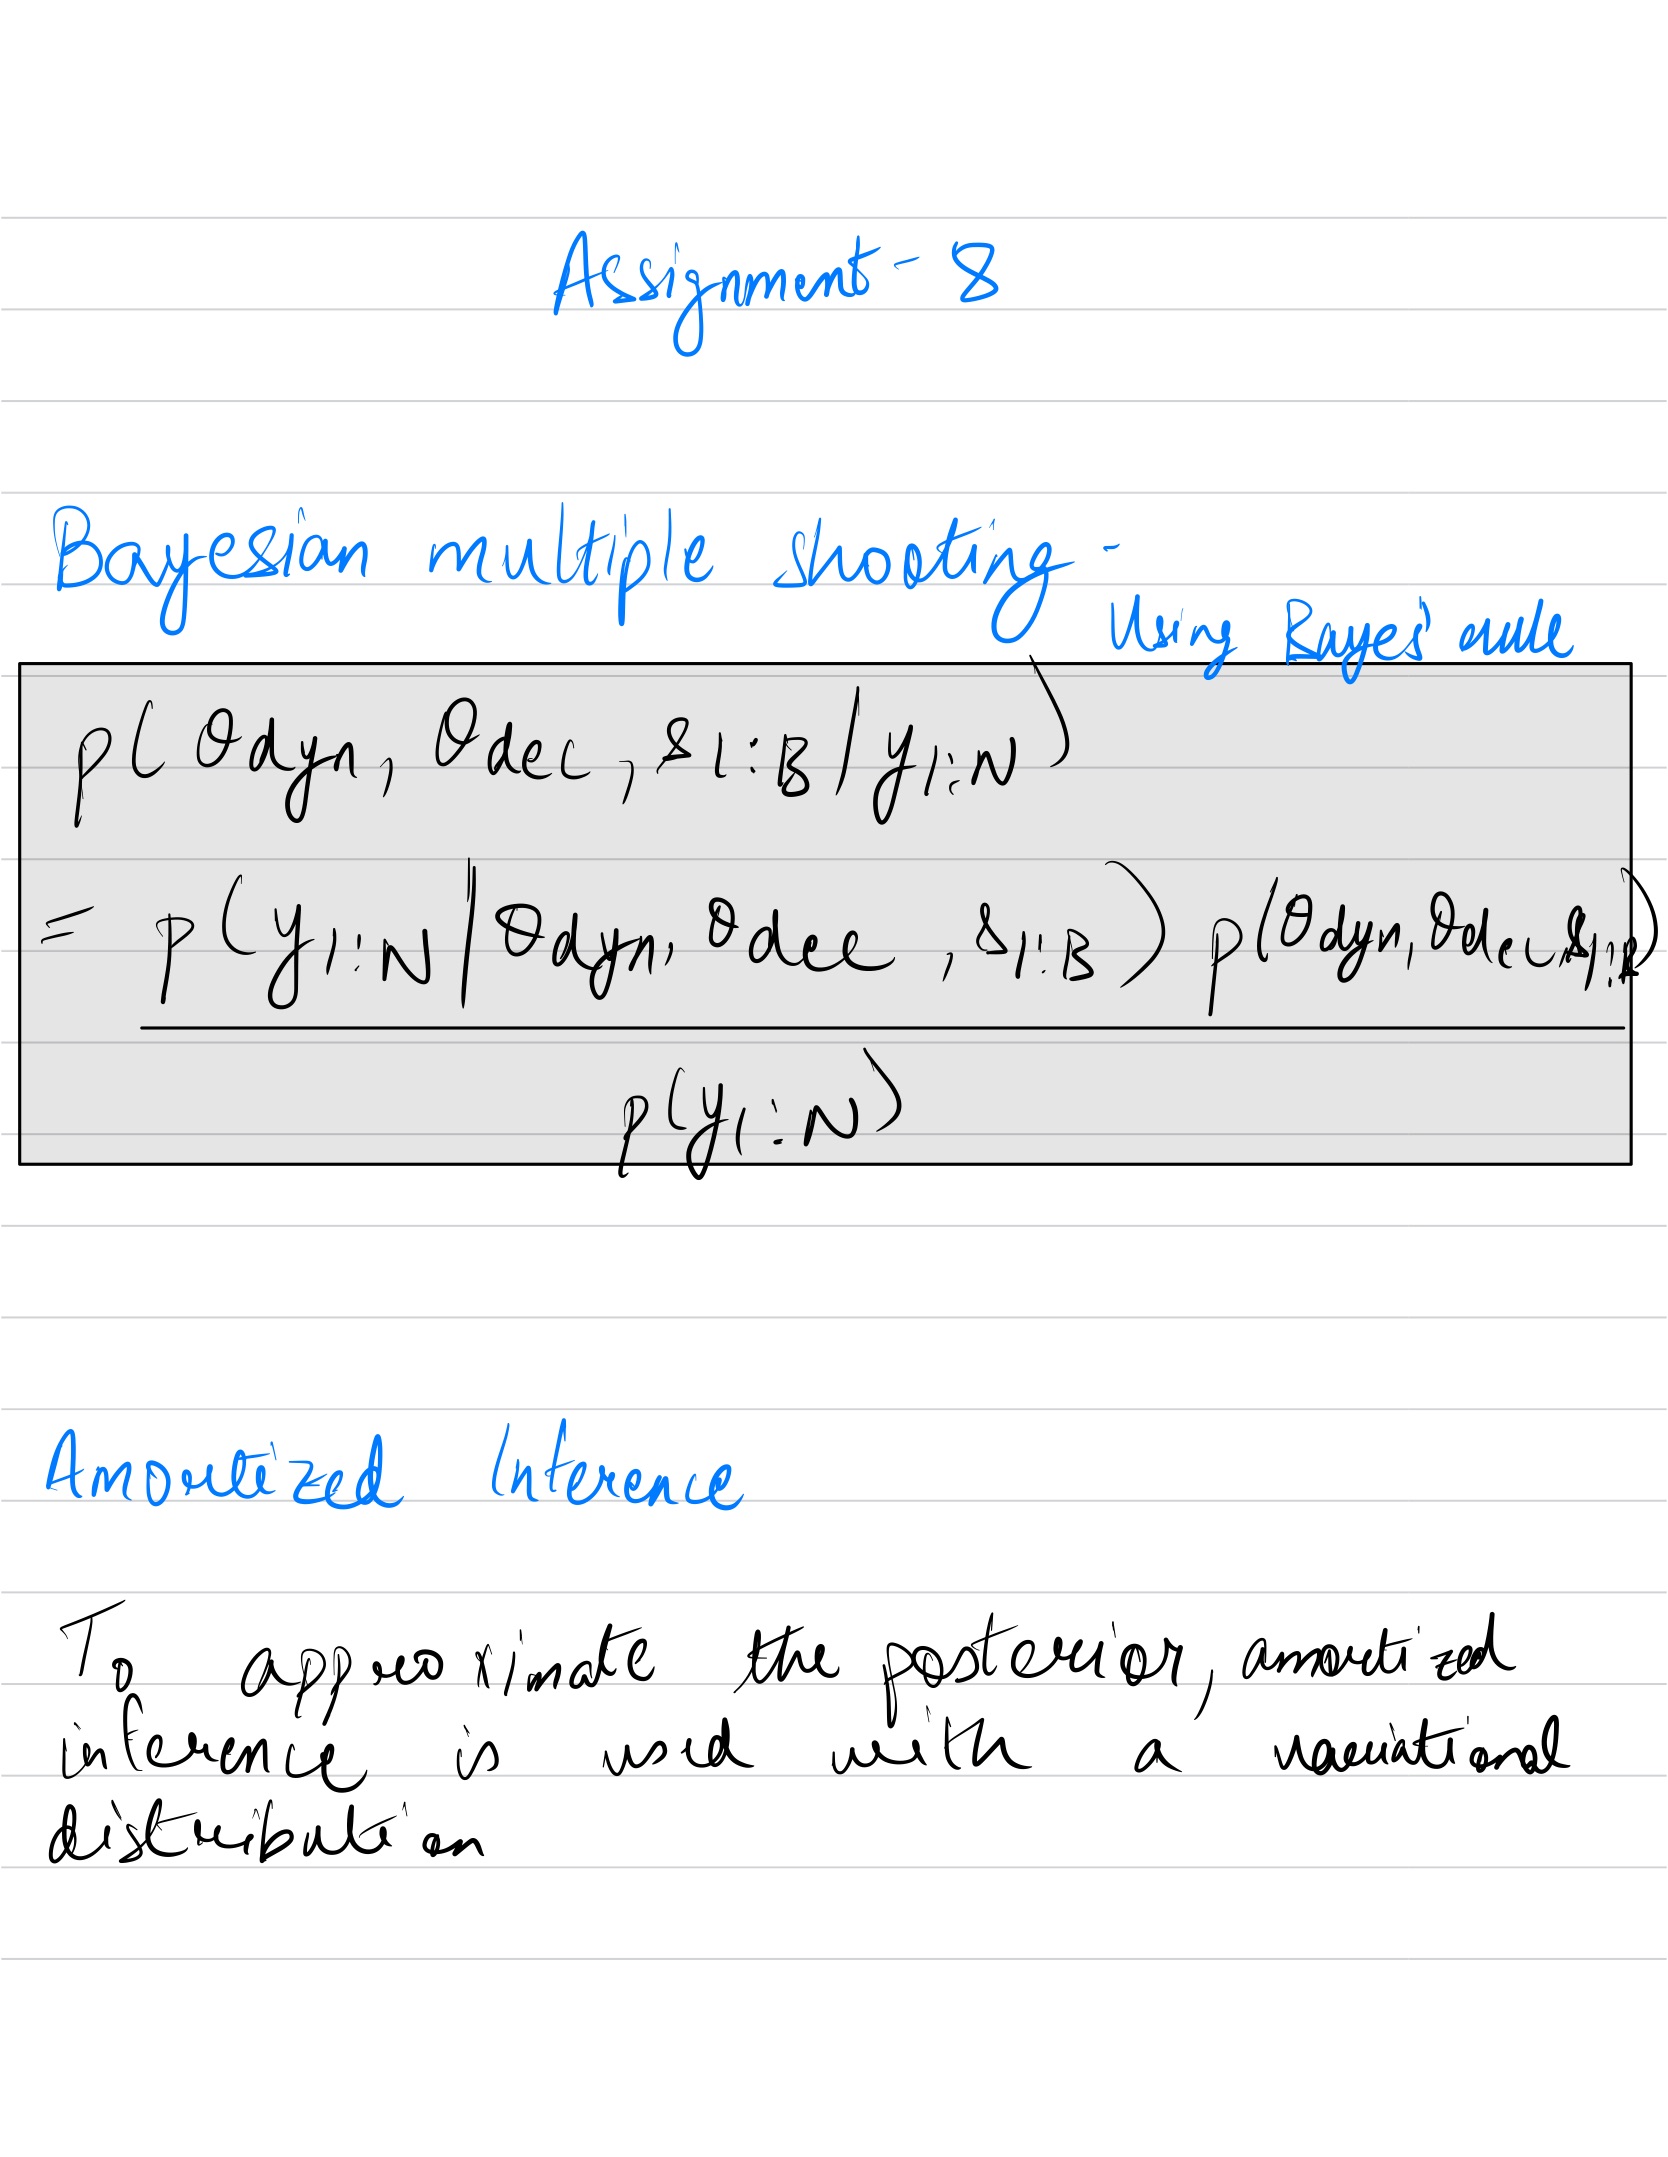 Assignment - 8
Bayesian multiple shooting -
Using Bayes' rule
p(θdyn, θdec, s1:B | y1:N)
= p(y1:N | θdyn, θdec, s1:B) p(θdyn, θdec, s1:B)
p(y1:N)
Amortized Inference
To approximate the posterior, amortized
inference is used with a variational
distribution